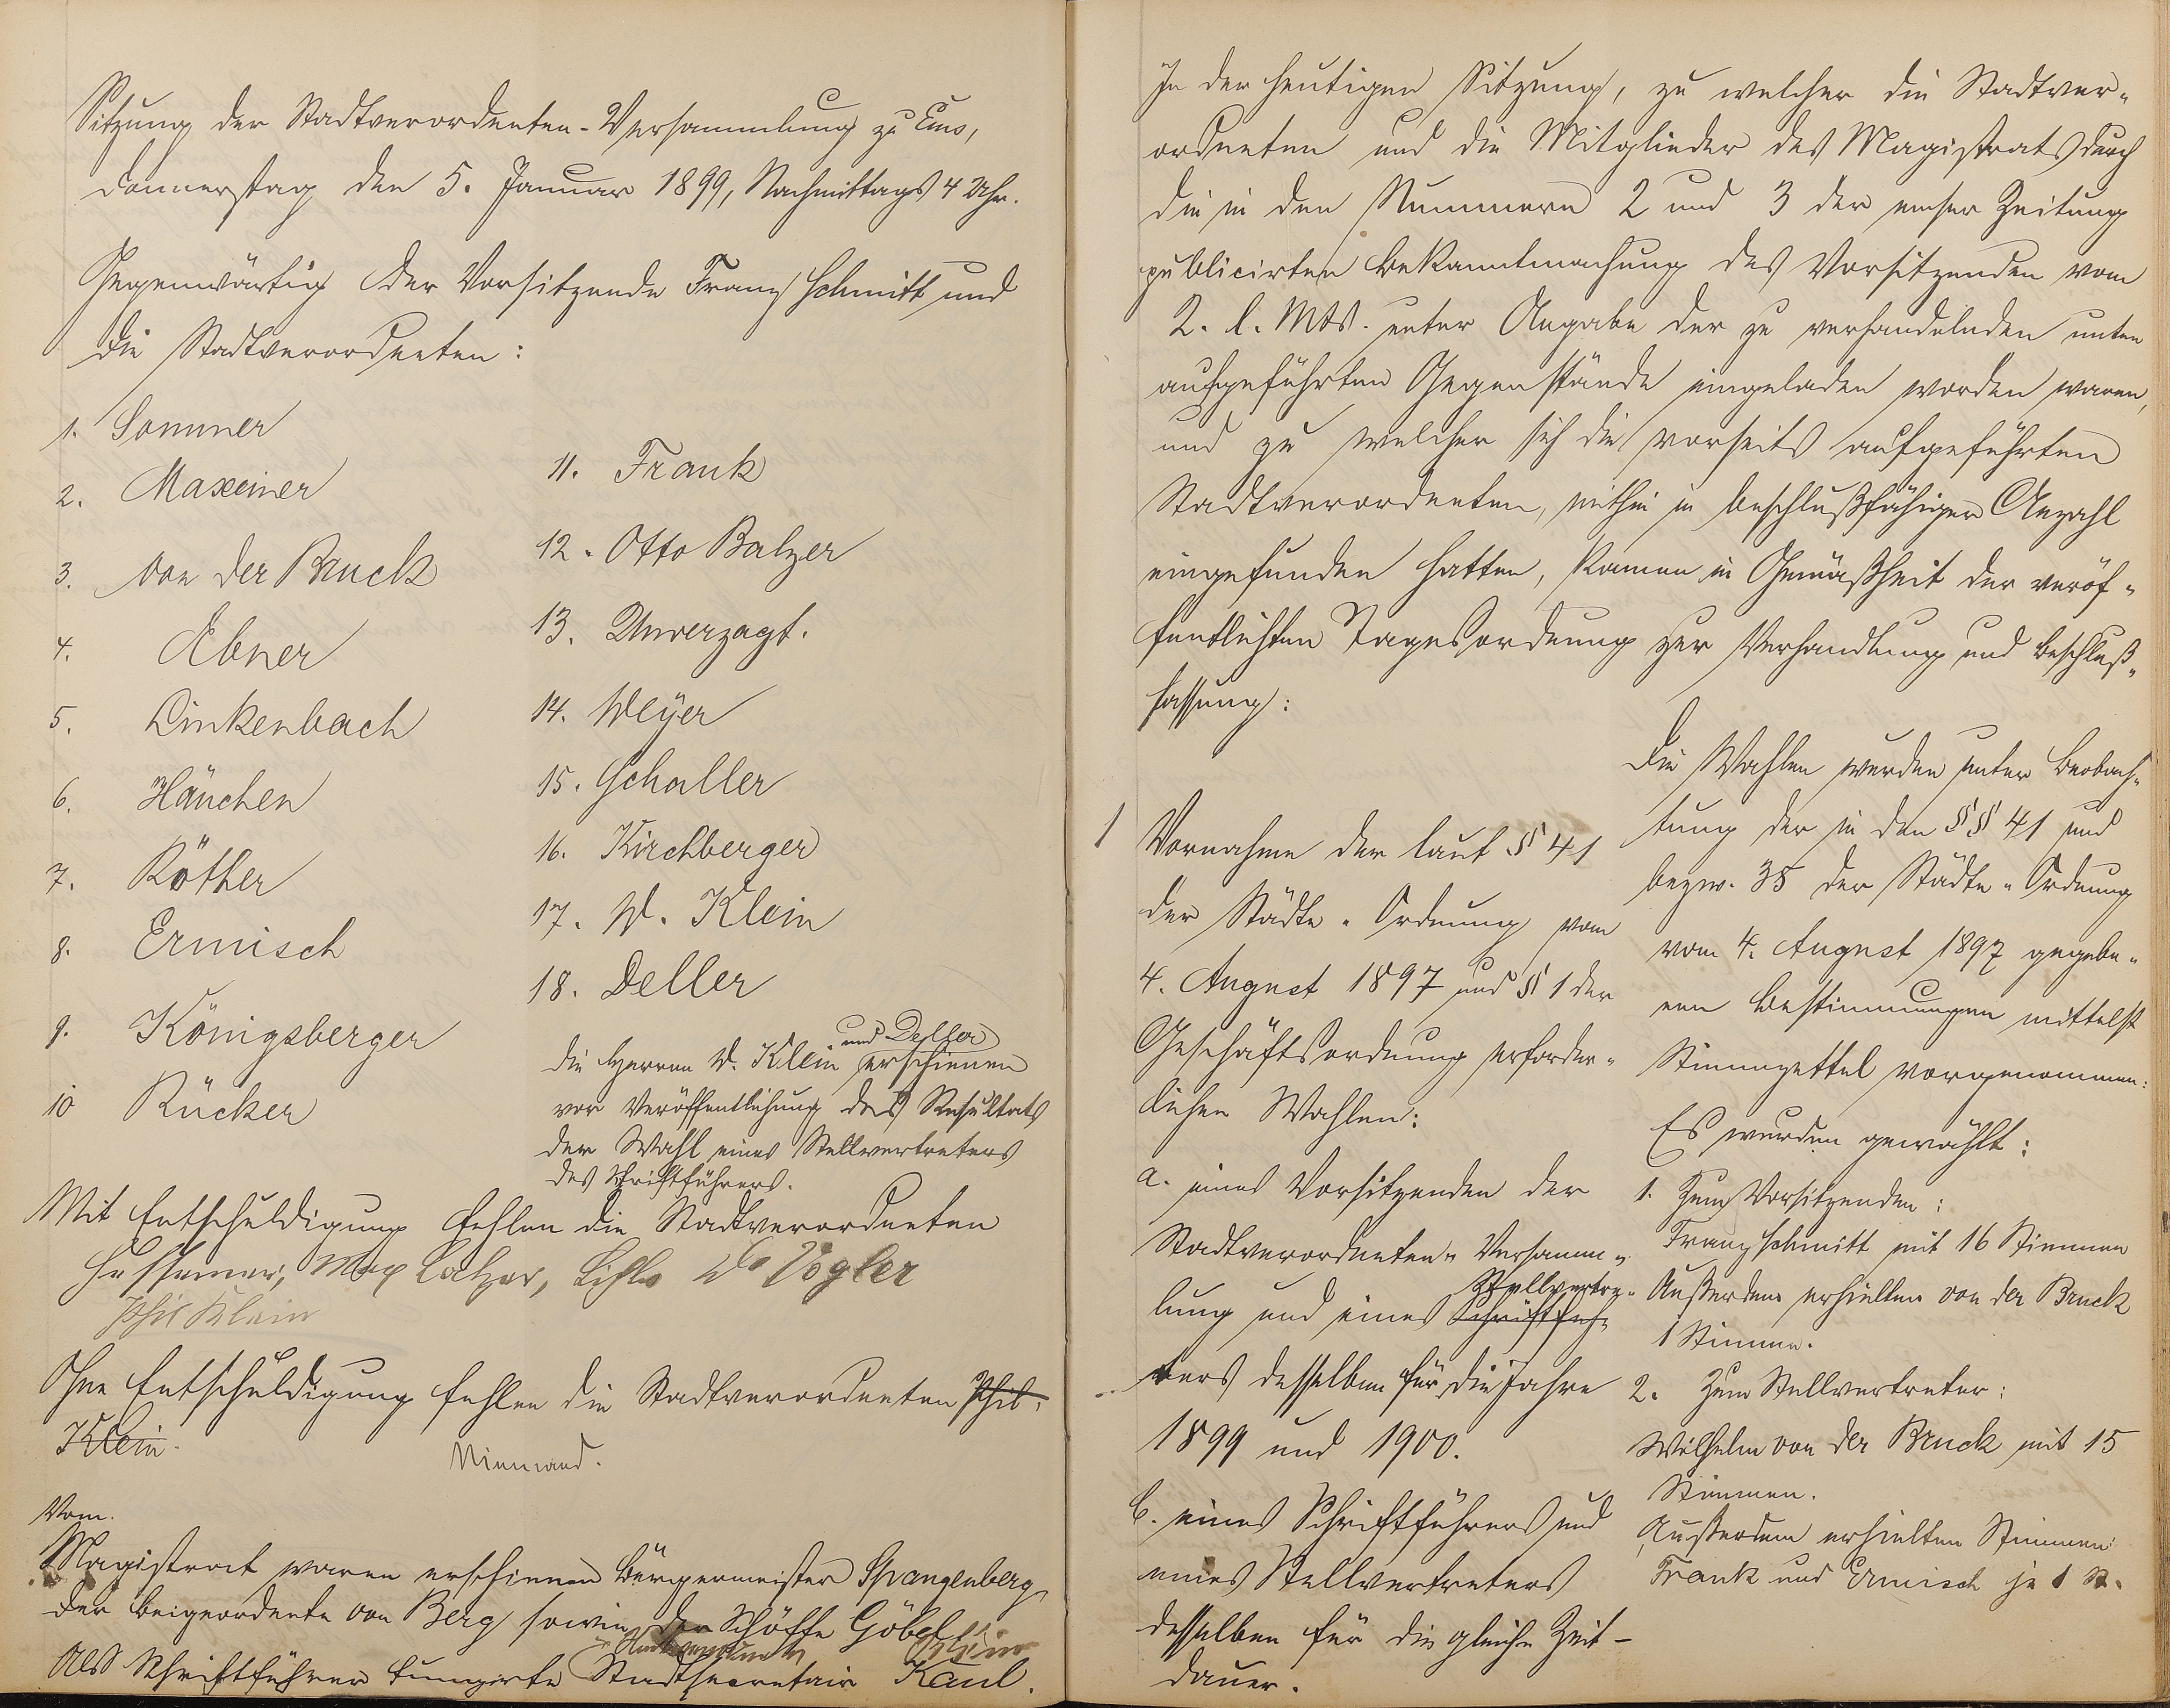 Sitzung der Stadtverordneten-Versammlung zu Ems,
Donnerstag den 5. Januar 1899, Nachmittags 4 Uhr.
Gegenwärtig der Vorsitzende Franz Schmitt und
die Stadtverordneten:
1. Sommer
2. Maxeiner
3. von der Bruck
4. Ebner
5. Linkenbach
6. Häuchen
7. Röther
8. Ermisch
9. Königsberger
10 Rücker
11. Frank
12. Otto Balzer
13. Unverzagt.
14. Weyer
15. Schaller
16. Kirchberger
17. W. Klein
18. Deller
und Deller
die Herren W. Klein erschienen
vor Veröffentlichung des Resultats
der Wahl eines Stellvertreters
des Schriftführers.
Mit Entschuldigung fehlen die Stadtverordneten
Max Balzer, Vogler
Phil Klein
Ohne Entschuldigung fehlen die Stadtverordneten Phil.
Klein.
Niemand.
Vom
Magistrat waren erschienen Bürgermeister Spangenberg,
der Beigeordnete von Berg sowie der Schöffe Göbel
Als Schriftführer fungirte Stadtsecretair Kaul.
In der heutigen Sitzung, zu welcher die Stadtver-
ordneten und die Mitglieder des Magistrats durch
die in den Nummern 2 und 3 der emser Zeitung
publicirten Bekanntmachung des Vorsitzenden vom
2. l. Mts. unter Angabe der zu verhandelnden unten
aufgeführten Gegenstände eingeladen worden waren,
und zu welcher sich die vorseits aufgeführten
Stadtverordneten, mithin in beschlußfähiger Anzahl
eingefunden hatten, kamen in Gemäßheit der veröf-
fentlichten Tagesordnung zur Verhandlung und Beschluß-
fassung:
1 Vornahme der laut § 41
der Städte-Ordnung vom
4. August 1897 und § 1 der
Geschäftsordnung erforder-
lichen Wahlen:
a. eines Vorsitzenden der
Stadtverordneten-Versamm-
Stellvertre-
lung und eines Schriftfüh-
ters desselben für die Jahre
1899 und 1900.
b. eines Schriftführers und
eines Stellvertreters
desselben für die gleiche Zeit-
dauer.
Die Wahlen wurden unter Beobach-
tung der in den §§ 41 und
bezw. 35 der Städte-Ordnung
vom 4. August 1897 gegebe-
nen Bestimmungen mittelst
Stimmzettel vorgenommen:
Es wurden gewählt:
1. Zum Vorsitzenden:
Franz Schmitt mit 16 Stimmen
Außerdem erhielten von der Bruck
1 Stimme.
2. Zum Stellvertreter:
Wilhelm von der Bruck mit 15
Stimmen.
Außerdem erhielten Stimmen:
Frank und Ermisch je 1 St.